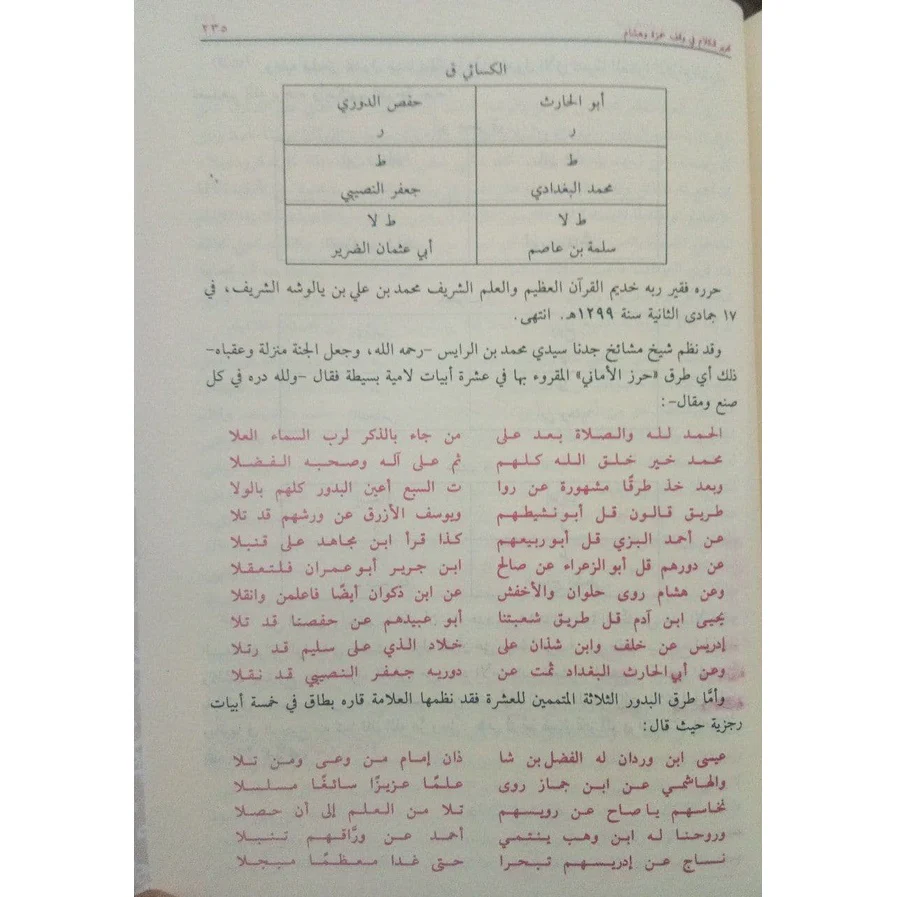 ٢٣٥
الكسائي ق
أبو الحارث حفص الدوري
ر ر
ط ط
محمد البغدادي جعفر النصيبي
ط لا ط لا
سلمة بن عاصم أبي عثمان الضرير
حرره فقير ربه خديم القرآن العظيم والعلم الشريف محمد بن علي بن يالوشه الشريف، في
١٧ جمادى الثانية سنة ١٢٩٩هـ. انتهى.
وقد نظم شيخ مشائخ جدنا سيدي محمد بن الرايس –رحمه الله، وجعل الجنة منزلة وعقباه–
ذلك أي طرق «حرز الأماني» المقروء بها في عشرة أبيات لامية بسيطة فقال –ولله دره في كل
صنع ومقال–:
الحمد لله والصلاة بعد على من جاء بالذكر لرب السماء العلا
محمد خير خلق الله كلهم ثم على آله وصحبه الفضلا
وبعد خذ طرقًا مشهورة عن روا ت السبع أعين البدور كلهم بالولا
طريق قالون قل أبو نشيطهم ويوسف الأزرق عن ورشهم قد تلا
عن أحمد البزي قل أبو ربيعهم كذا قرأ ابن مجاهد على قنبلا
عن دورهم قل أبو الزعراء عن صالح ابن جرير أبو عمران فلتعقلا
وعن هشام روى حلوان والأخفش عن ابن ذكوان أيضًا فاعلمن وانقلا
يحيى ابن آدم قل طريق شعبتنا أبو عبيدهم عن حفصنا قد تلا
إدريس عن خلف وابن شذان على خلاد الذي على سليم قد رتلا
وعن أبي الحارث البغداد ثمت عن دوريه جعفر النصيبي قد نقلا
وأمَّا طرق البدور الثلاثة المتممين للعشرة فقد نظمها العلامة قاره بطاق في خمسة أبيات
رجزية حيث قال:
عيسى ابن وردان له الفضل بن شا ذان إمام من وعى ومن تلا
والهاشمي عن ابن جماز روى علمًا عزيزًا سائغًا مسلسلا
نخاسهم يا صاح عن رويسهم تلا من العلم إلى أن حصلا
وروحنا له ابن وهب ينتمي أحمد عن ورَّاقهم تنبلا
نساج عن إدريسهم تبحرا حتى غدا معظمًا مبجلا